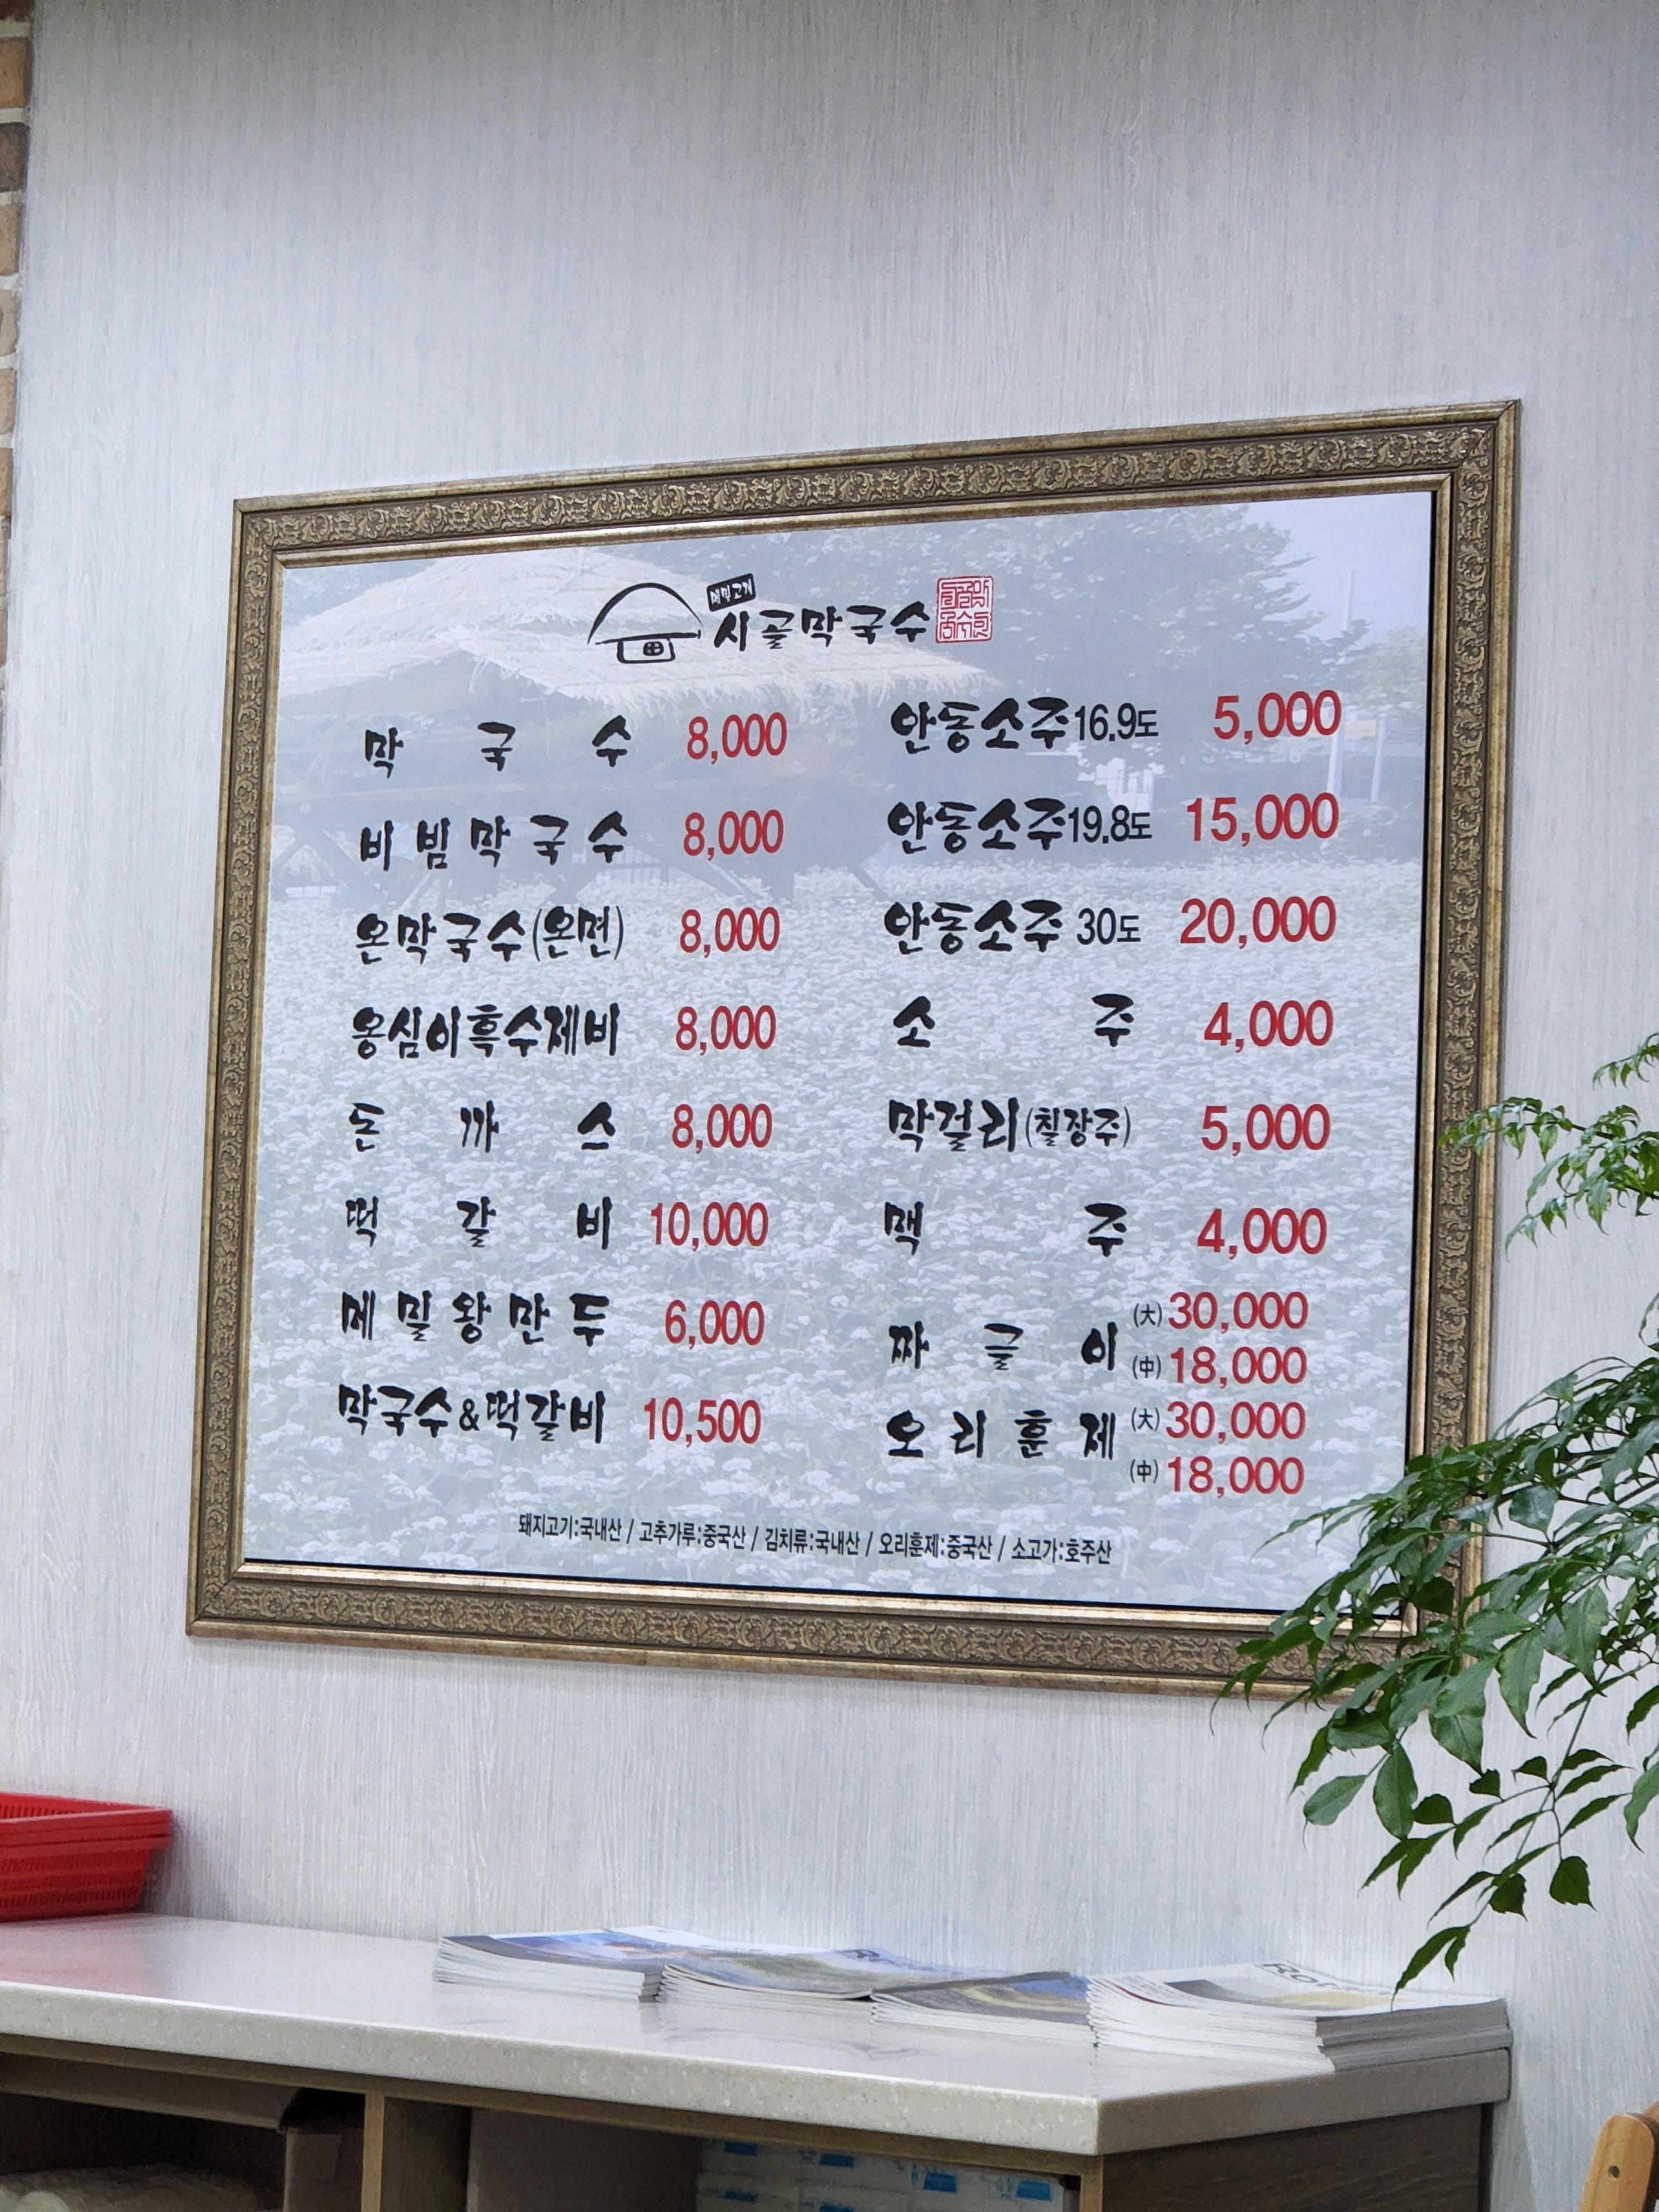 메밀고개
시골막국수
막국수 8,000
비빔막국수 8,000
온막국수(온면) 8,000
옹심이흑수제비 8,000
돈까스 8,000
떡갈비 10,000
메밀왕만두 6,000
막국수&떡갈비 10,500
안동소주16.9도 5,000
안동소주19.8도 15,000
안동소주 30도 20,000
소주 4,000
막걸리(칠장주) 5,000
맥주 4,000
짜글이 (大)30,000
(中)18,000
오리훈제 (大)30,000
(中)18,000
돼지고기:국내산 / 고추가루:중국산 / 김치류:국내산 / 오리훈제:중국산 / 소고가:호주산